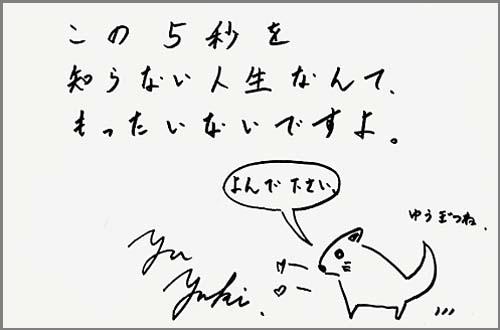 この5秒を
知らない人生なんて、
もったいないですよ。
よんで下さい。
ゆうぎつね.
Yu
Yuki.